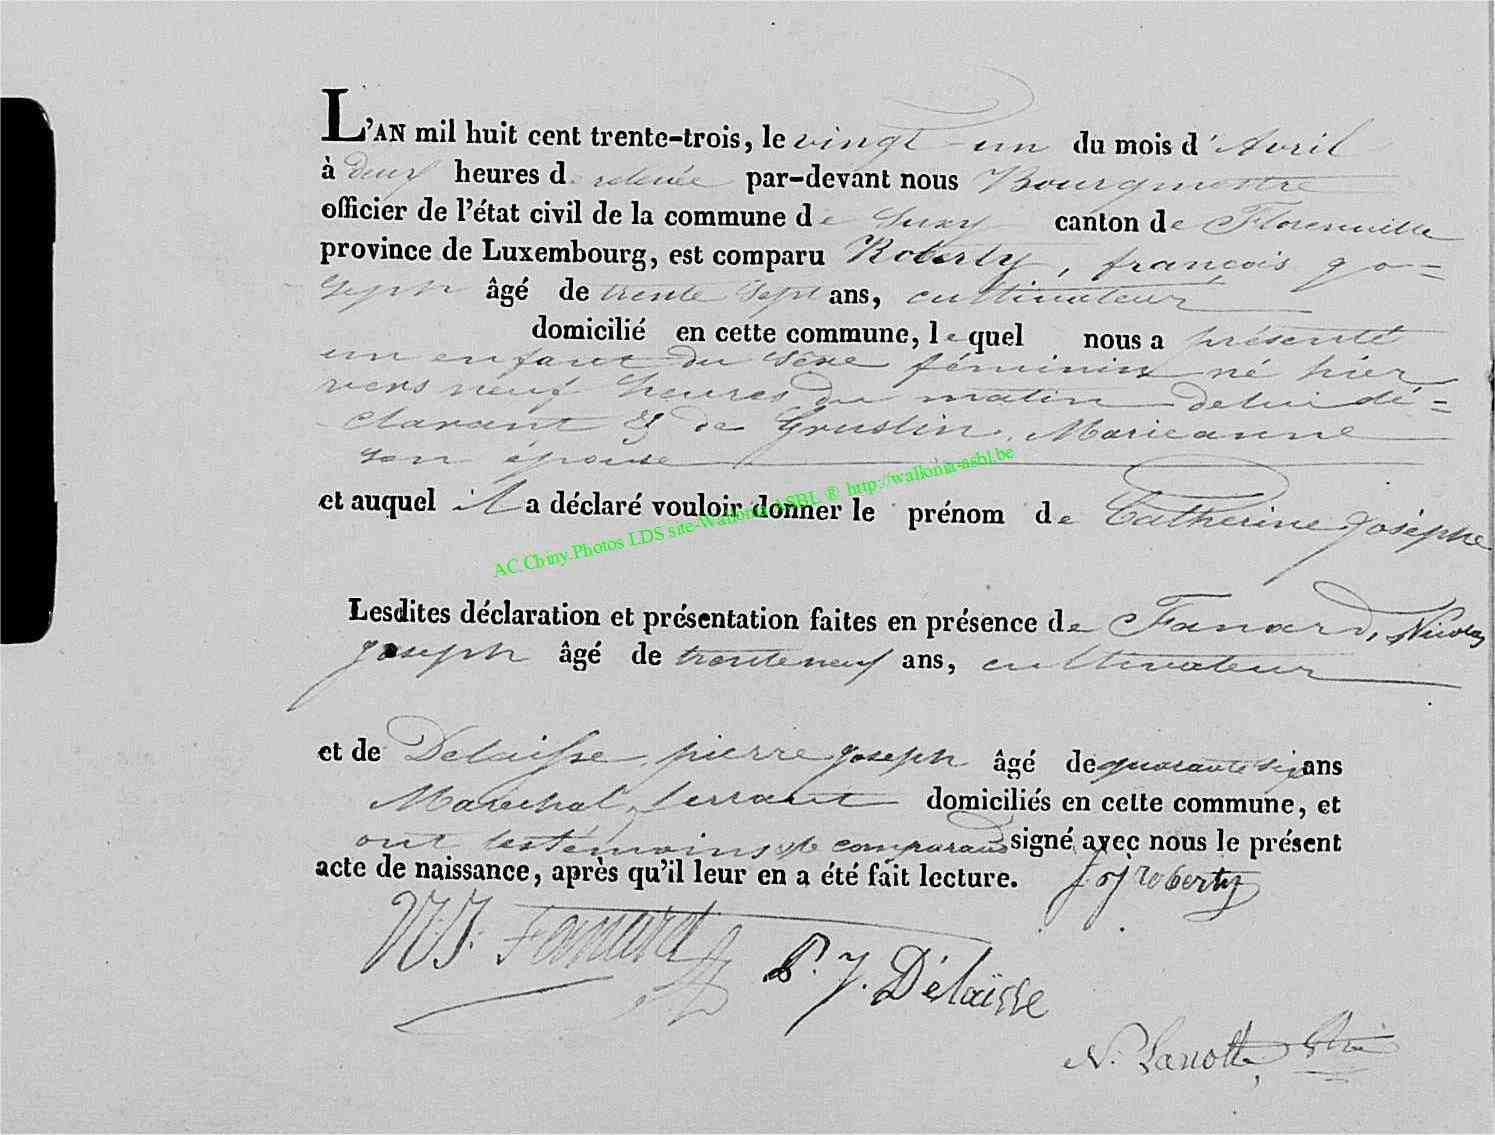 L'AN mil huit cent trente-trois, le vingt-un du mois d'Avril
à deux heures de relevée par-devant nous Bourgmestre
officier de l'état civil de la commune de Suxy canton de Florenville
province de Luxembourg, est comparu Roberty, françois jo=
seph âgé de trente sept ans, cultivateur
domicilié en cette commune, lequel nous a présenté
un enfant du sexe féminin né hier
vers neuf heures du matin de lui dé=
clarant & de Gruslin, Marieanne
son épouse
et auquel il a déclaré vouloir donner le prénom de Catherine joséphe
AC.Chiny.Photos LDS site-Wallonia ASBL ® http://wallonia-asbl.be
Lesdites déclaration et présentation faites en présence de Fanard, Nicolas
joseph âgé de trente neuf ans, cultivateur
et de Delaisse pierre joseph âgé de quarante six ans
Marechal ferrant domiciliés en cette commune, et
ont les témoins & le comparant signé avec nous le présent
acte de naissance, après qu'il leur en a été fait lecture. f j roberty
N J. Fanard
P. J. Délaïsse
N. Lanotte